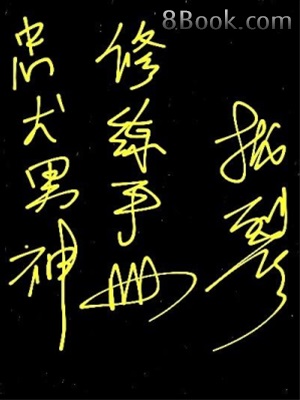 8Book.com
忠犬男神
修练手册